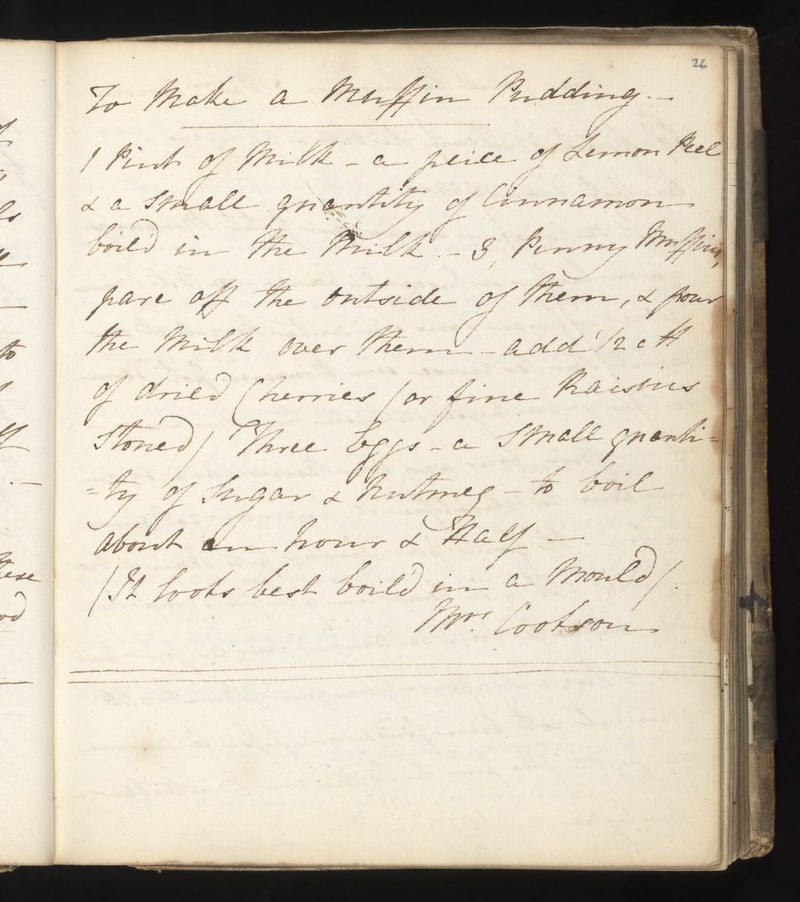 26
To Make a Muffin Pudding -
1 Pint of Milk - a peice of Lemon Peel
& a small quantity of Cinnamon
boil'd in the Milk - 3, Penny Muffins,
pare off the outside of them, & pour
the Milk over them - add 1/2 a lb
of dried Cherries (or fine Raisins
Stoned) Three Eggs - a small quanti=
=ty of Sugar & Nutmeg - to boil
about an hour & Half -
(It looks best boil'd in a Mould).
Mrs. Cookson
to